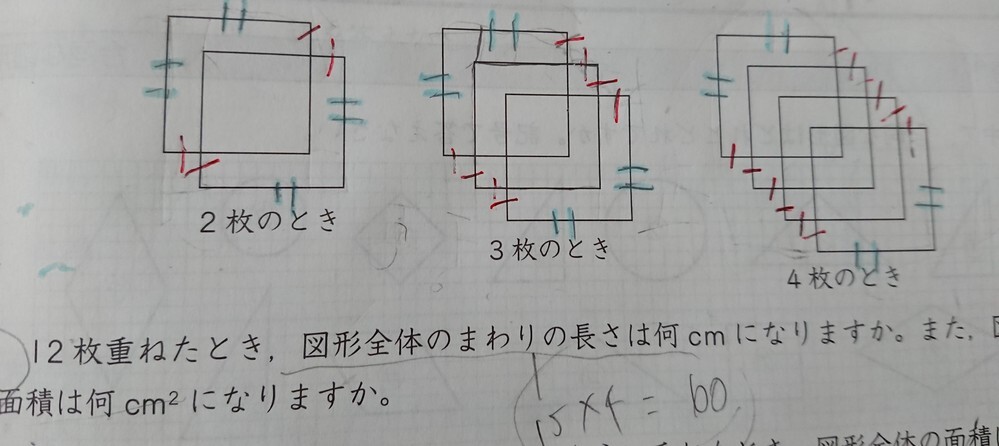 2枚のとき
3枚のとき
4枚のとき
12枚重ねたとき，図形全体のまわりの長さは何cmになりますか。また，
面積は何cm²になりますか。
15×4=60
図形全体の面積